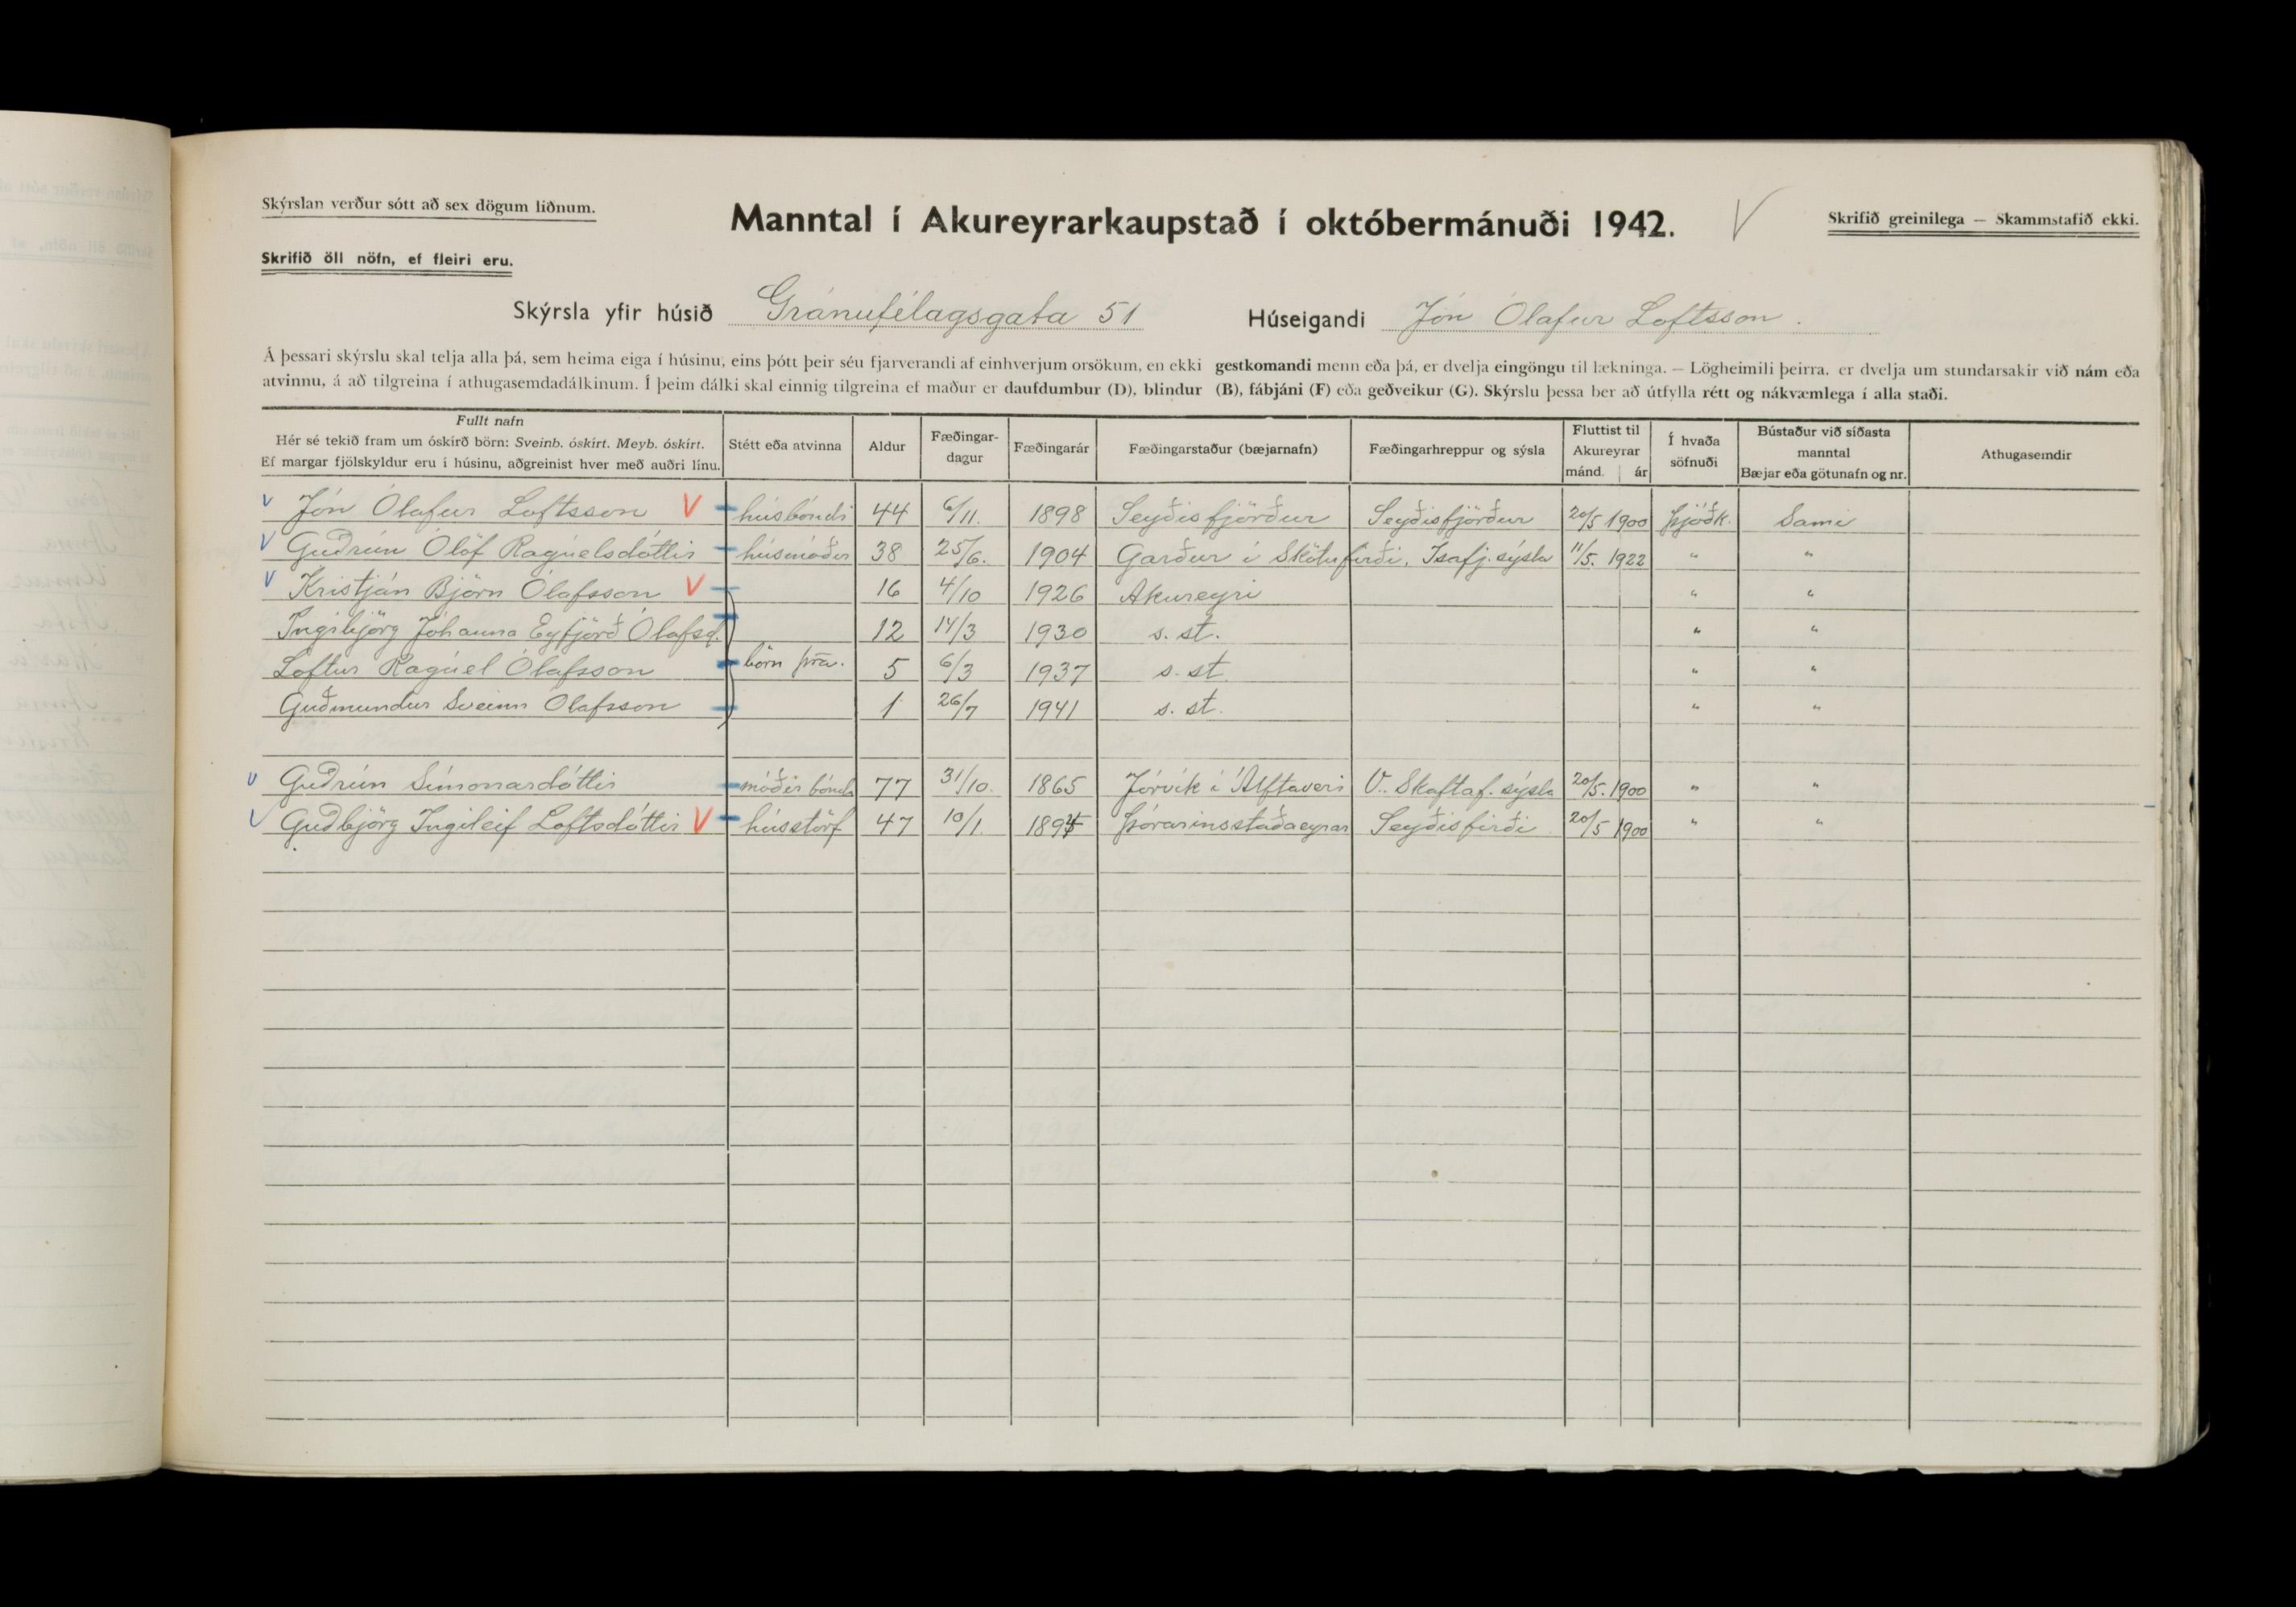 Skýrslan verður sótt að sex dögum liðnum.
Manntal í Akureyrarkaupstað í októbermánuði 1942. V
Skrifið greinilega — Skammstafið ekki.
Skrifið öll nöfn, ef fleiri eru.
Skýrsla yfir húsið Gránufélagsgata 51 Húseigandi Jón Ólafur Loftsson.
Á þessari skýrslu skal telja alla þá, sem heima eiga í húsinu, eins þótt þeir séu fjarverandi af einhverjum orsökum, en ekki gestkomandi menn eða þá, er dvelja eingöngu til lækninga. — Lögheimili þeirra, er dvelja um stundarsakir við nám eða
atvinnu, á að tilgreina í athugasemdadálkinum. Í þeim dálki skal einnig tilgreina ef maður er daufdumbur (D), blindur (B), fábjáni (F) eða geðveikur (G). Skýrslu þessa ber að útfylla rétt og nákvæmlega í alla staði.
Fullt nafn
Hér sé tekið fram um óskírð börn: Sveinb. óskírt. Meyb. óskírt.
Ef margar fjölskyldur eru í húsinu, aðgreinist hver með auðri línu.
Stétt eða atvinna
Aldur
Fæðingar-
dagur
Fæðingarár
Fæðingarstaður (bæjarnafn)
Fæðingarhreppur og sýsla
Fluttist til
Akureyrar
mánd. ár
Í hvaða
söfnuði
Bústaður við síðasta
manntal
Bæjar eða götunafn og nr.
Athugasemdir
V Jón Ólafur Loftsson V húsbóndi 44 6/11. 1898 Seyðisfjörður Seyðisfjörður 20/5 1900 þjóðk. Sami
V Guðrún Ólöf Ragúelsdóttir húsmóðir 38 25/6. 1904 Garður í Skötufirði, Ísafj.sýsla 11/5. 1922 " "
V Kristján Björn Ólafsson V 16 4/10 1926 Akureyri " "
Ingibjörg Jóhanna Eyfjörð Ólafsd. 12 14/3 1930 s. st. " "
Loftur Ragúel Ólafsson börn þra. 5 6/3 1937 s. st. " "
Guðmundur Sveinn Ólafsson 1 26/7 1941 s. st. " "
V Guðrún Símonardóttir móðir bónda 77 31/10. 1865 Jórvík í Álftaveri V. Skaftaf.sýsla 20/5. 1900 " "
V Guðbjörg Ingileif Loftsdóttir V hússtörf 47 10/1 1895 Þórarinsstaðaeyrar Seyðisfirði 20/5 1900 " "